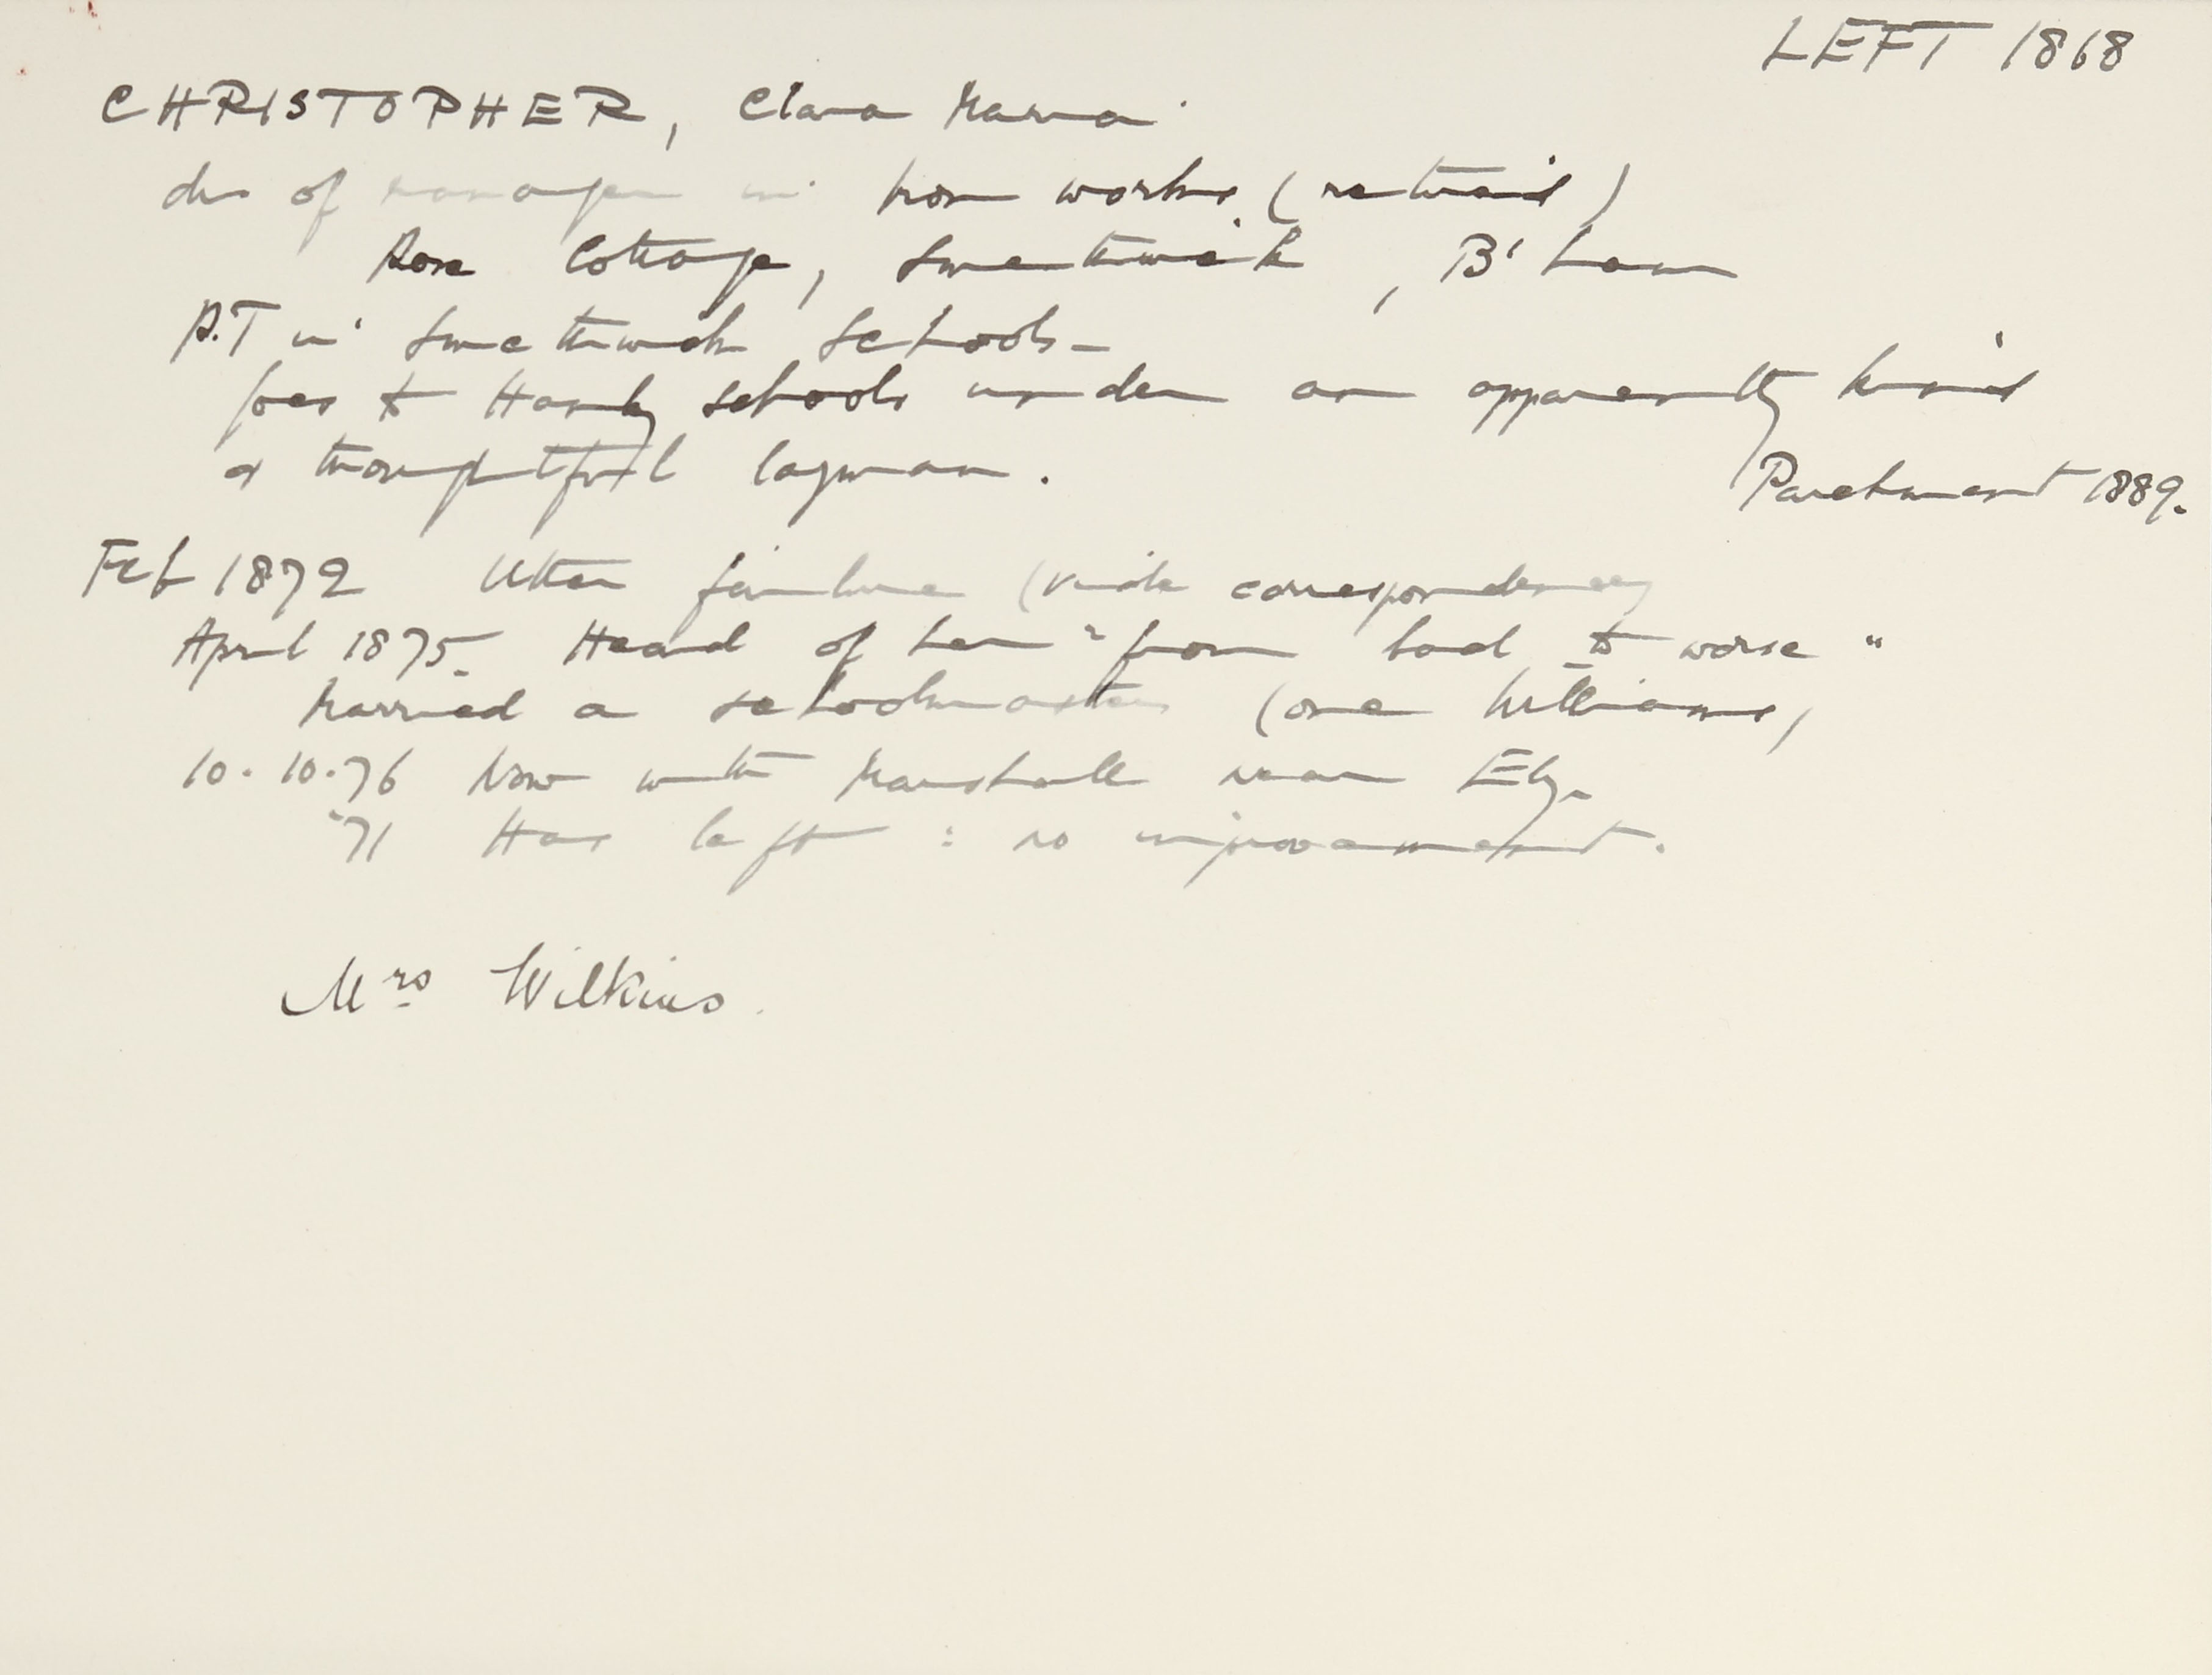 LEFT 1868
CHRISTOPHER, Clara Maria
dr of manager in iron works (retired)
Rose Cottage, Smethwick, B'ham
P.T in Smethwick Schools -
goes to Hanley schools under an apparently kind
& thoughtful layman.
Parchment 1889.
Feb 1872 Utter failure (vide correspondence)
April 1875. Heard of her "from bad to worse"
Married a schoolmaster (one Williams)
10.10.76 Now with Marshall near Ely.
'71 Has left : no improvement.
Mrs Wilkins.